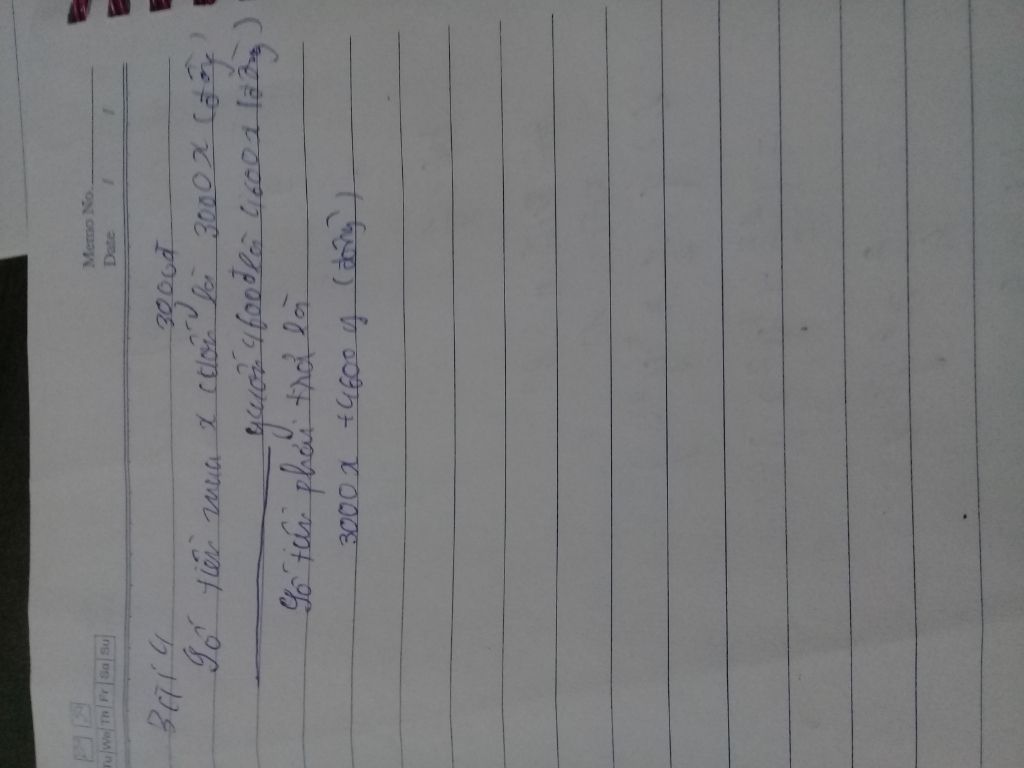 Memo No.
Date / /
Tu We Th Fr Sa Su
Bài 4
3000đ
Số tiền mua x cuốn là 3000x (đồng)
y cuốn 4600đ là 4600x (đồng)
Số tiền phải trả là
3000x + 4600y (đồng)